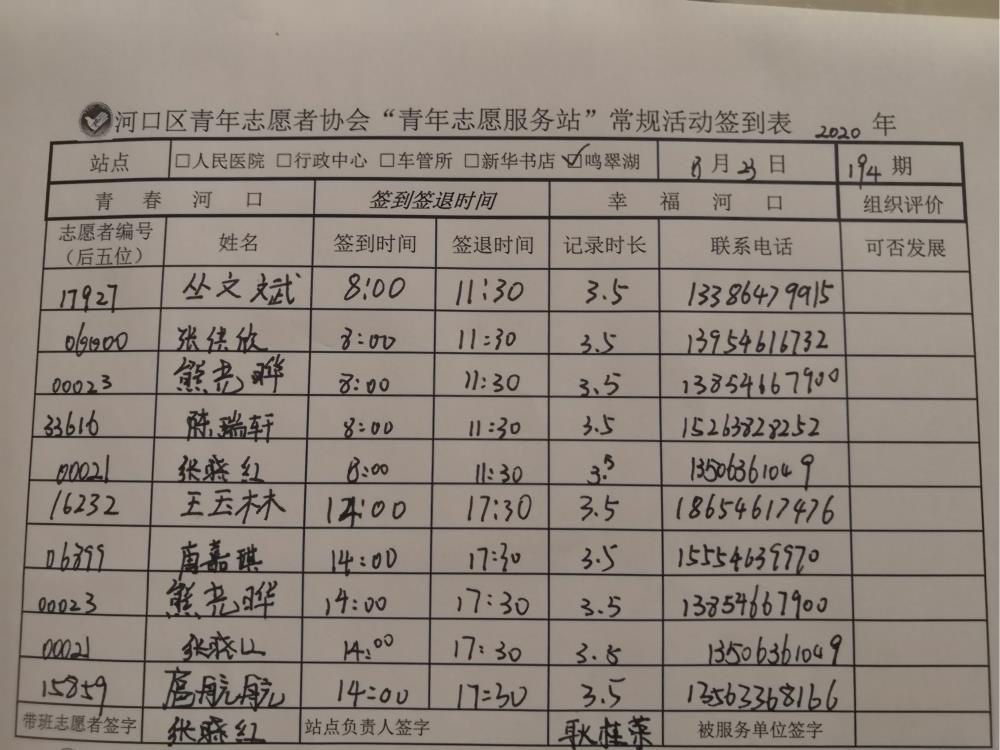 河口区青年志愿者协会“青年志愿服务站”常规活动签到表 2020 年
站点 □人民医院 □行政中心 □车管所 □新华书店 ☑鸣翠湖 8月23日 194期
青春河口 签到签退时间 幸福河口 组织评价
志愿者编号（后五位） 姓名 签到时间 签退时间 记录时长 联系电话 可否发展
17927 丛文斌 8:00 11:30 3.5 13386479915
张佳欣 8:00 11:30 3.5 13954616732
00023 熊尧晔 8:00 11:30 3.5 13854667900
33616 陈瑞轩 8:00 11:30 3.5 15263828252
00021 张晓红 8:00 11:30 3.5 13506361049
16232 王玉林 14:00 17:30 3.5 18654617476
06399 唐嘉琪 14:00 17:30 3.5 15554639970
00023 熊尧晔 14:00 17:30 3.5 13854667900
00021 张晓红 14:00 17:30 3.5 13506361049
15859 航航 14:00 17:30 3.5 13563368166
带班志愿者签字 张晓红 站点负责人签字 耿桂荣 被服务单位签字